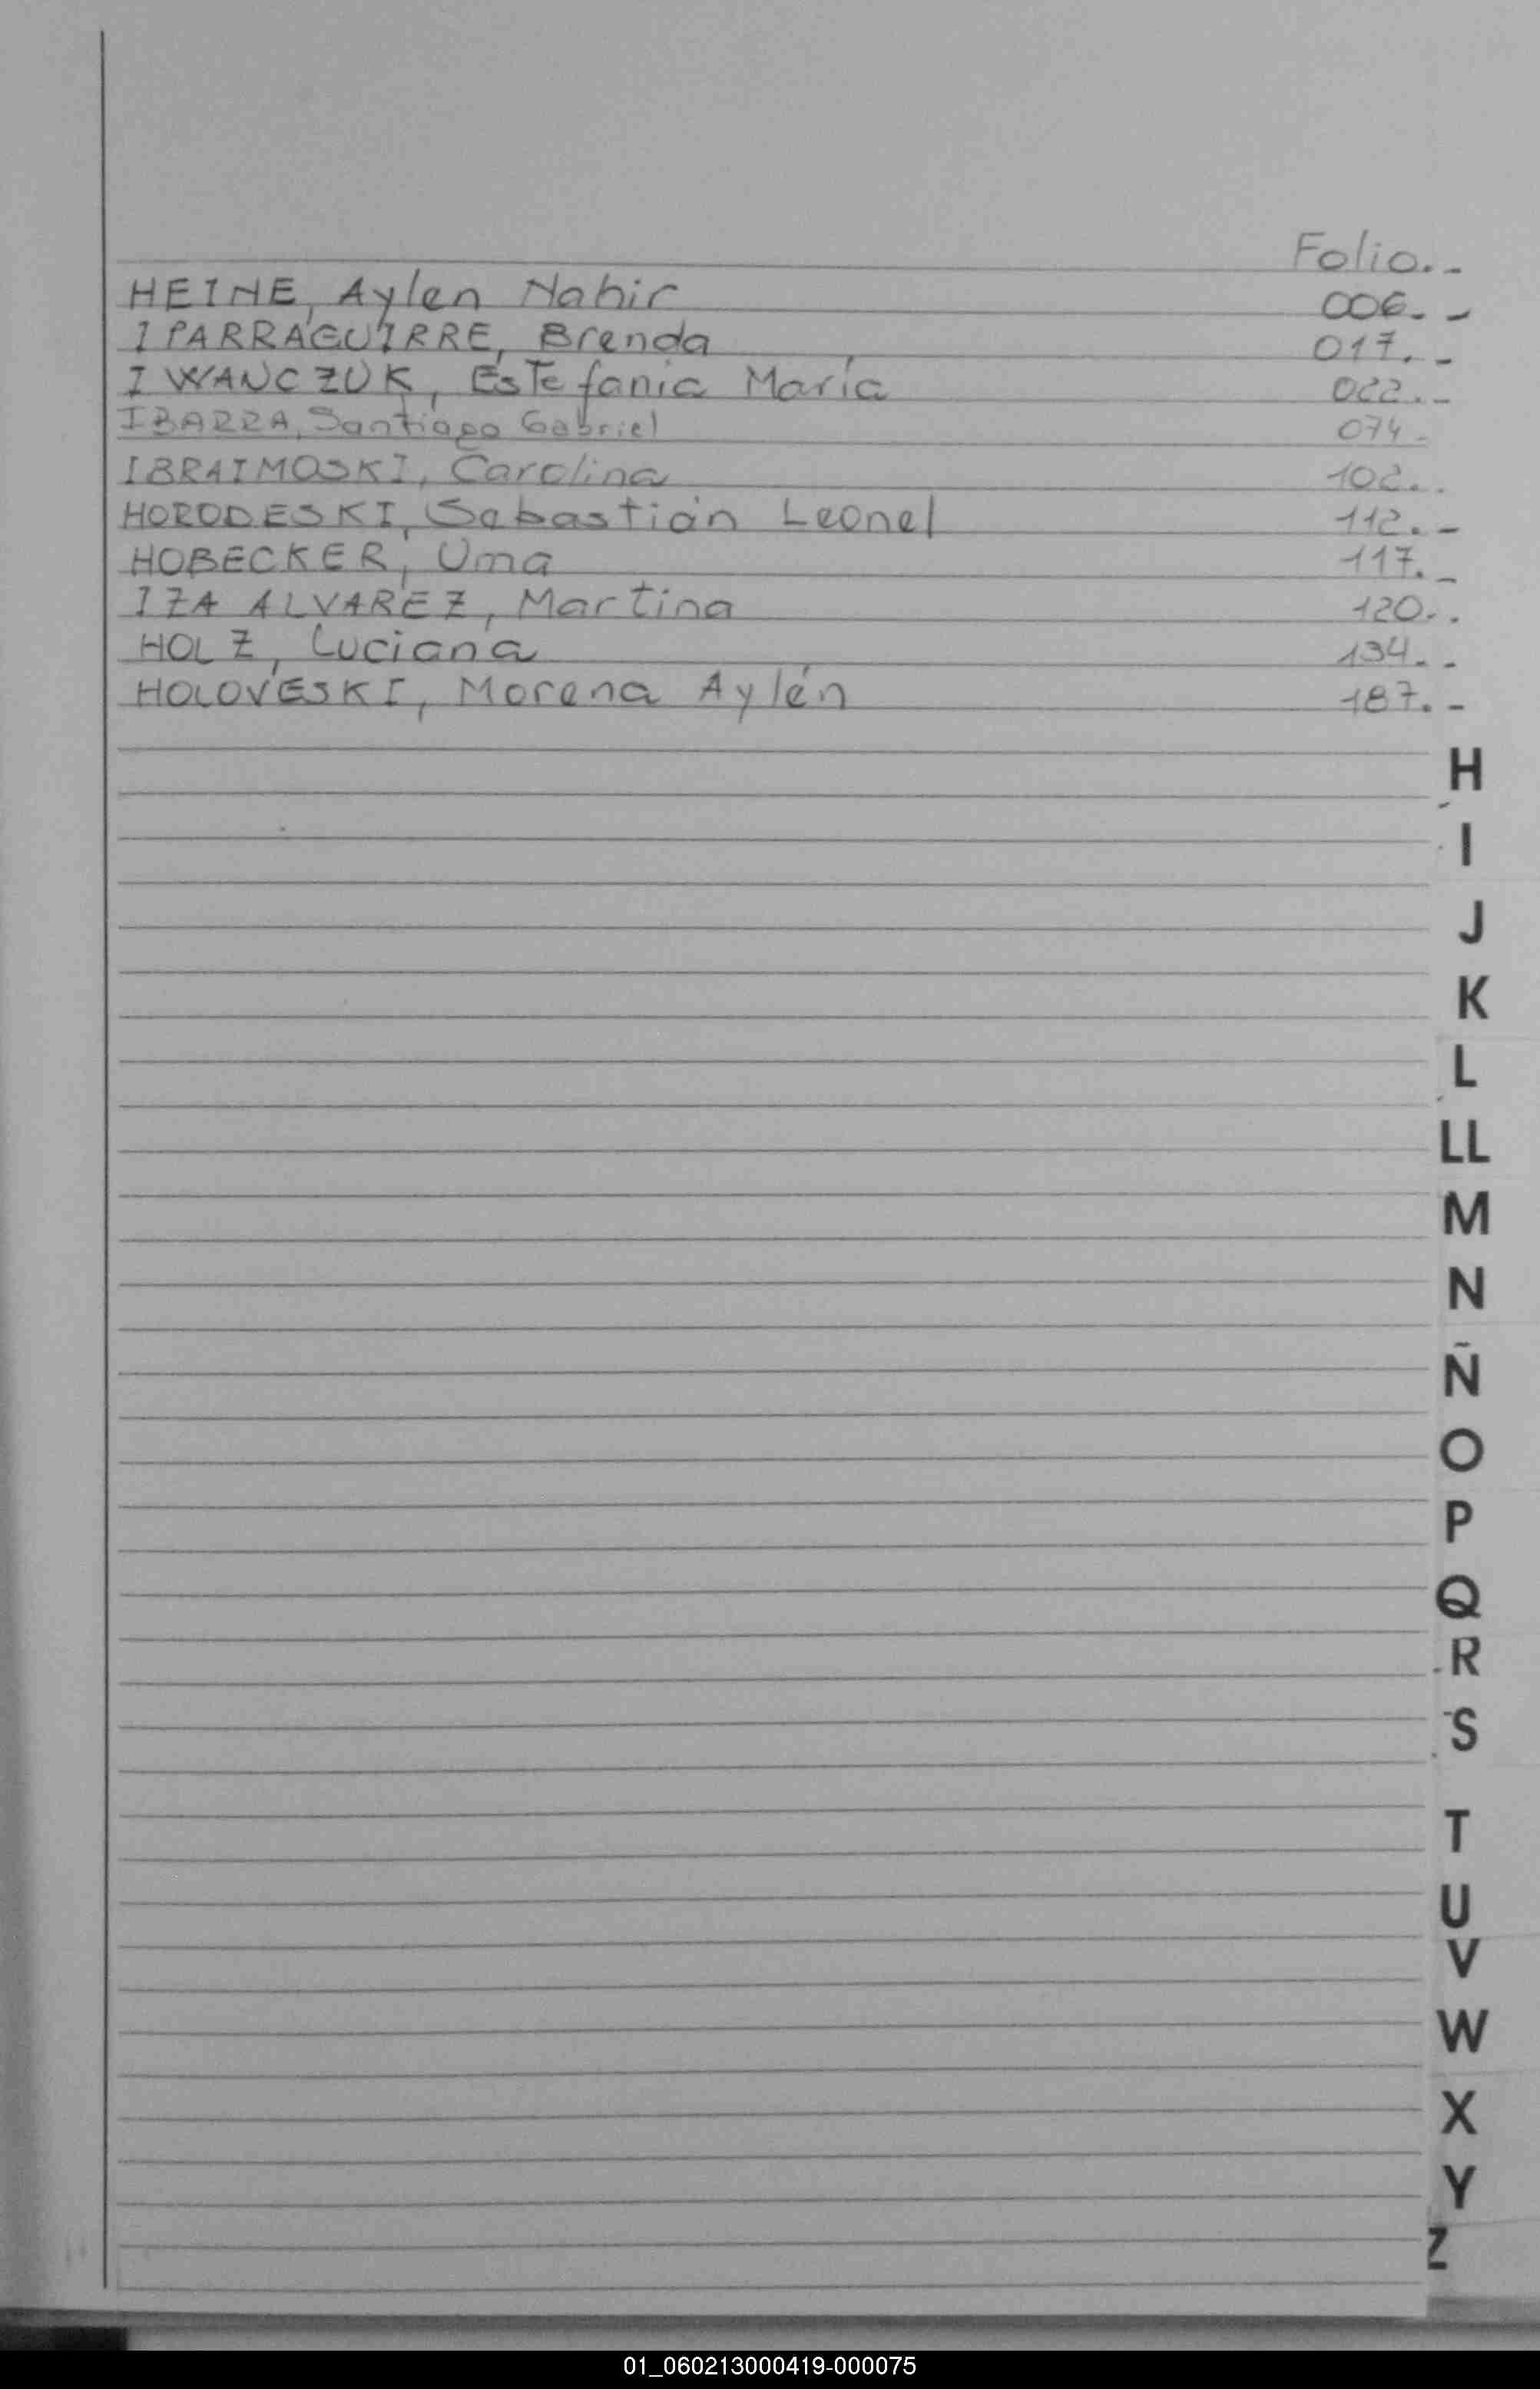 Folio.-
HEINE, Aylen Nahir 006.-
IPARRAGUIRRE, Brenda 017.-
IWANCZUK, Estefania María 022.-
IBARRA, Santiago Gabriel 074-
IBRAIMOSKI, Carolina 102..
HORODESKI, Sabastián Leonel 112.-
HOBECKER, Uma 117.-
IZA ALVAREZ, Martina 120..
HOLZ, Luciana 134..
HOLOVESKI, Morena Aylén 187.-
H
I
J
K
L
LL
M
N
Ñ
O
P
Q
R
S
T
U
V
W
X
Y
Z
01_060213000419-000075